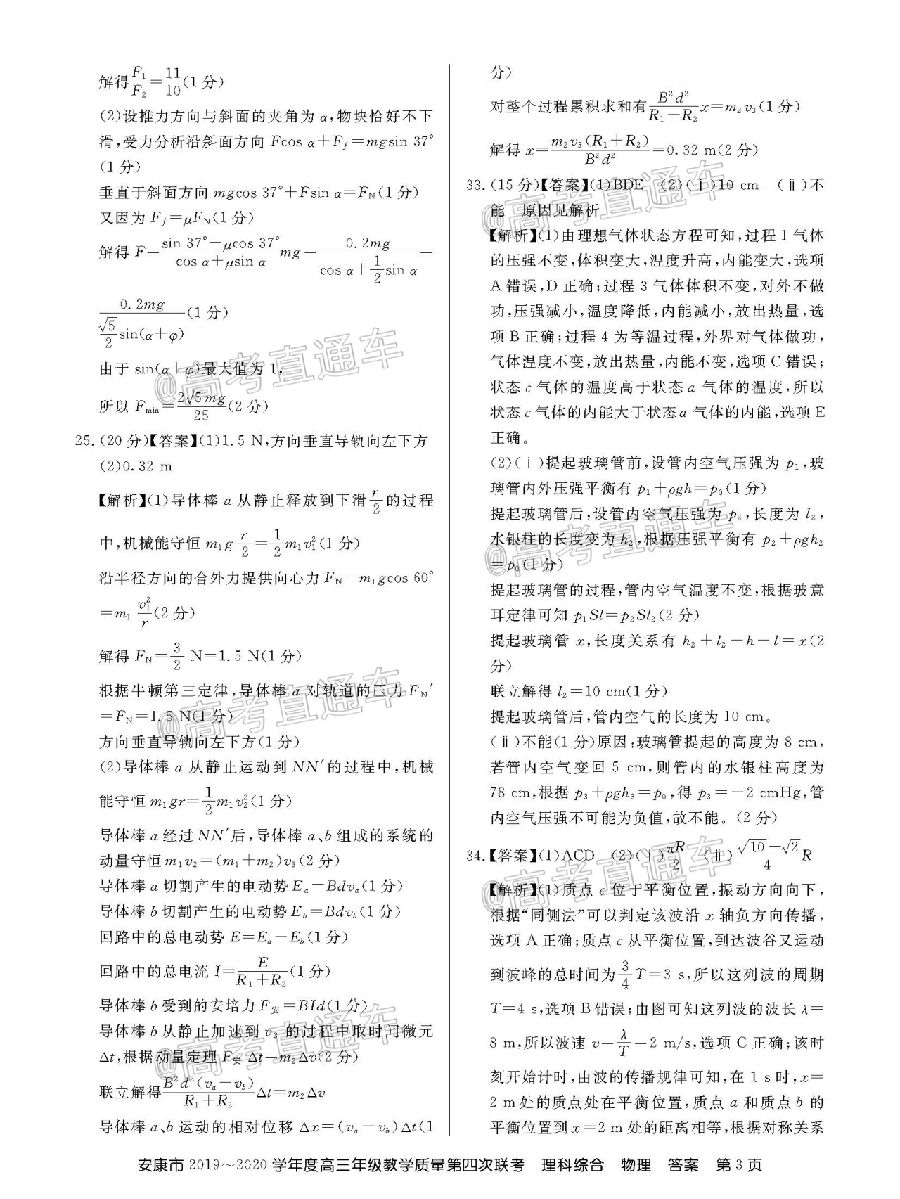 解得F₁/F₂=11/10(1分)
(2)设推力方向与斜面的夹角为α,物块恰好不下
滑,受力分析沿斜面方向Fcos α+F_f=mgsin 37°
(1分)
垂直于斜面方向mgcos 37°+Fsin α=F_N(1分)
又因为F_f=μF_N(1分)
解得F=(sin 37°-μcos 37°)/(cos α+μsin α) mg=0.2mg/(cos α+1/2 sin α)=
0.2mg/(√5/2 sin(α+φ))(1分)
由于sin(α+φ)最大值为1,
所以F_min=2√5mg/25(2分)
25.(20分)【答案】(1)1.5 N,方向垂直导轨向左下方
(2)0.32 m
【解析】(1)导体棒a从静止释放到下滑r/2的过程
中,机械能守恒m₁g r/2=1/2 m₁v₁²(1分)
沿半径方向的合外力提供向心力F_N-m₁gcos 60°
=m₁ v₁²/r(2分)
解得F_N=3/2 N=1.5 N(1分)
根据牛顿第三定律,导体棒a对轨道的压力F_N′
=F_N=1.5 N(1分)
方向垂直导轨向左下方(1分)
(2)导体棒a从静止运动到NN′的过程中,机械
能守恒m₁gr=1/2 m₁v₂²(1分)
导体棒a经过NN′后,导体棒a、b组成的系统的
动量守恒m₁v₂=(m₁+m₂)v₃(2分)
导体棒a切割产生的电动势E_a=Bdv_a(1分)
导体棒b切割产生的电动势E_b=Bdv_b(1分)
回路中的总电动势E=E_a-E_b(1分)
回路中的总电流I=E/(R₁+R₂)(1分)
导体棒b受到的安培力F_安=BId(1分)
导体棒b从静止加速到v₃的过程中取时间微元
Δt,根据动量定理F_安Δt=m₂Δv(2分)
联立解得B²d²(v_a-v_b)/(R₁+R₂) Δt=m₂Δv
导体棒b运动的相对位移Δx=(v_a-v_b)Δt(1
分)
对整个过程累积求和有B²d²/(R₁+R₂) x=m₂v₃(1分)
解得x=m₂v₃(R₁+R₂)/B²d²=0.32 m(2分)
33.(15分)【答案】(1)BDE (2)(ⅰ)10 cm (ⅱ)不
能 原因见解析
【解析】(1)由理想气体状态方程可知,过程1气体
的压强不变,体积变大,温度升高,内能变大,选项
A错误,D正确;过程3气体体积不变,对外不做
功,压强减小,温度降低,内能减小,放出热量,选
项B正确;过程4为等温过程,外界对气体做功,
气体温度不变,放出热量,内能不变,选项C错误;
状态c气体的温度高于状态a气体的温度,所以
状态c气体的内能大于状态a气体的内能,选项E
正确。
(2)(ⅰ)提起玻璃管前,设管内空气压强为p₁,玻
璃管内外压强平衡有p₁+ρgh=p₀(1分)
提起玻璃管后,设管内空气压强为p₂,长度为l₂,
水银柱的长度变为h₂,根据压强平衡有p₂+ρgh₂
=p₀(1分)
提起玻璃管的过程,管内空气温度不变,根据玻意
耳定律可知p₁Sl=p₂Sl₂(2分)
提起玻璃管x,长度关系有h₂+l₂-h-l=x(2
分)
联立解得l₂=10 cm(1分)
提起玻璃管后,管内空气的长度为10 cm。
(ⅱ)不能(1分)原因:玻璃管提起的高度为8 cm,
若管内空气变回5 cm,则管内的水银柱高度为
78 cm,根据p₃+ρgh₃=p₀,得p₃=-2 cmHg,管
内空气压强不可能为负值,故不能。(2分)
34.【答案】(1)ACD (2)(ⅰ)πR/2 (ⅱ)(√10-√2)/4 R
【解析】(1)质点e位于平衡位置,振动方向向下,
根据“同侧法”可以判定该波沿x轴负方向传播,
选项A正确;质点c从平衡位置,到达波谷又运动
到波峰的总时间为3/4 T=3 s,所以这列波的周期
T=4 s,选项B错误;由图可知这列波的波长λ=
8 m,所以波速v=λ/T=2 m/s,选项C正确;该时
刻开始计时,由波的传播规律可知,在1 s时,x=
2 m处的质点处在平衡位置,质点a和质点b的
平衡位置与x=2 m处的距离相等,根据对称关系
安康市2019~2020学年度高三年级教学质量第四次联考 理科综合 物理 答案 第3页
@高考直通车
@高考直通车
@高考直通车
@高考直通车
@高考直通车
@高考直通车